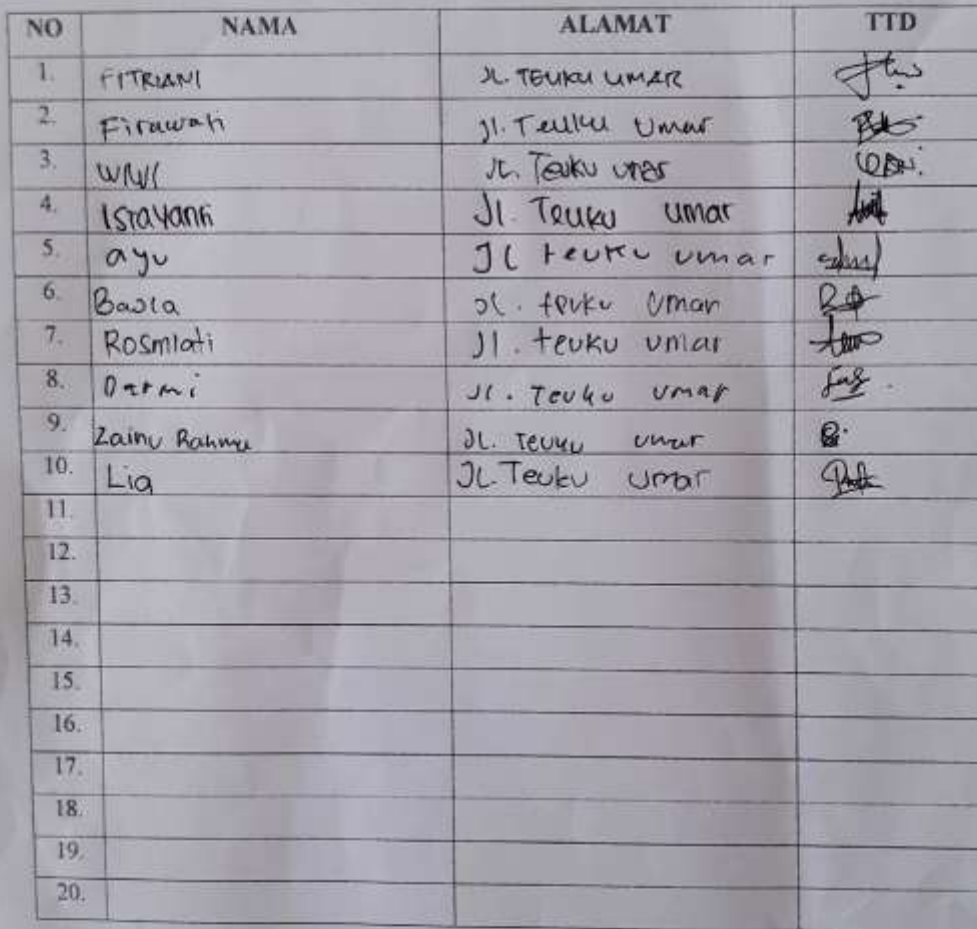 NO NAMA ALAMAT TTD
1. FITRIANI JL. TEUKU UMAR
2. Firawati Jl. Teuku Umar
3. WIWI JL. Teuku umar
4. Israyanti Jl. Teuku umar
5. ayu Jl teuku umar
6. Jl. teuku Umar
7. Rosmiati Jl. teuku umar
8. Darmi Jl. Teuku umar
9. Zainu Rahmu JL. Teuku umar
10. Lia JL. Teuku Umar
11.
12.
13.
14.
15.
16.
17.
18.
19.
20.